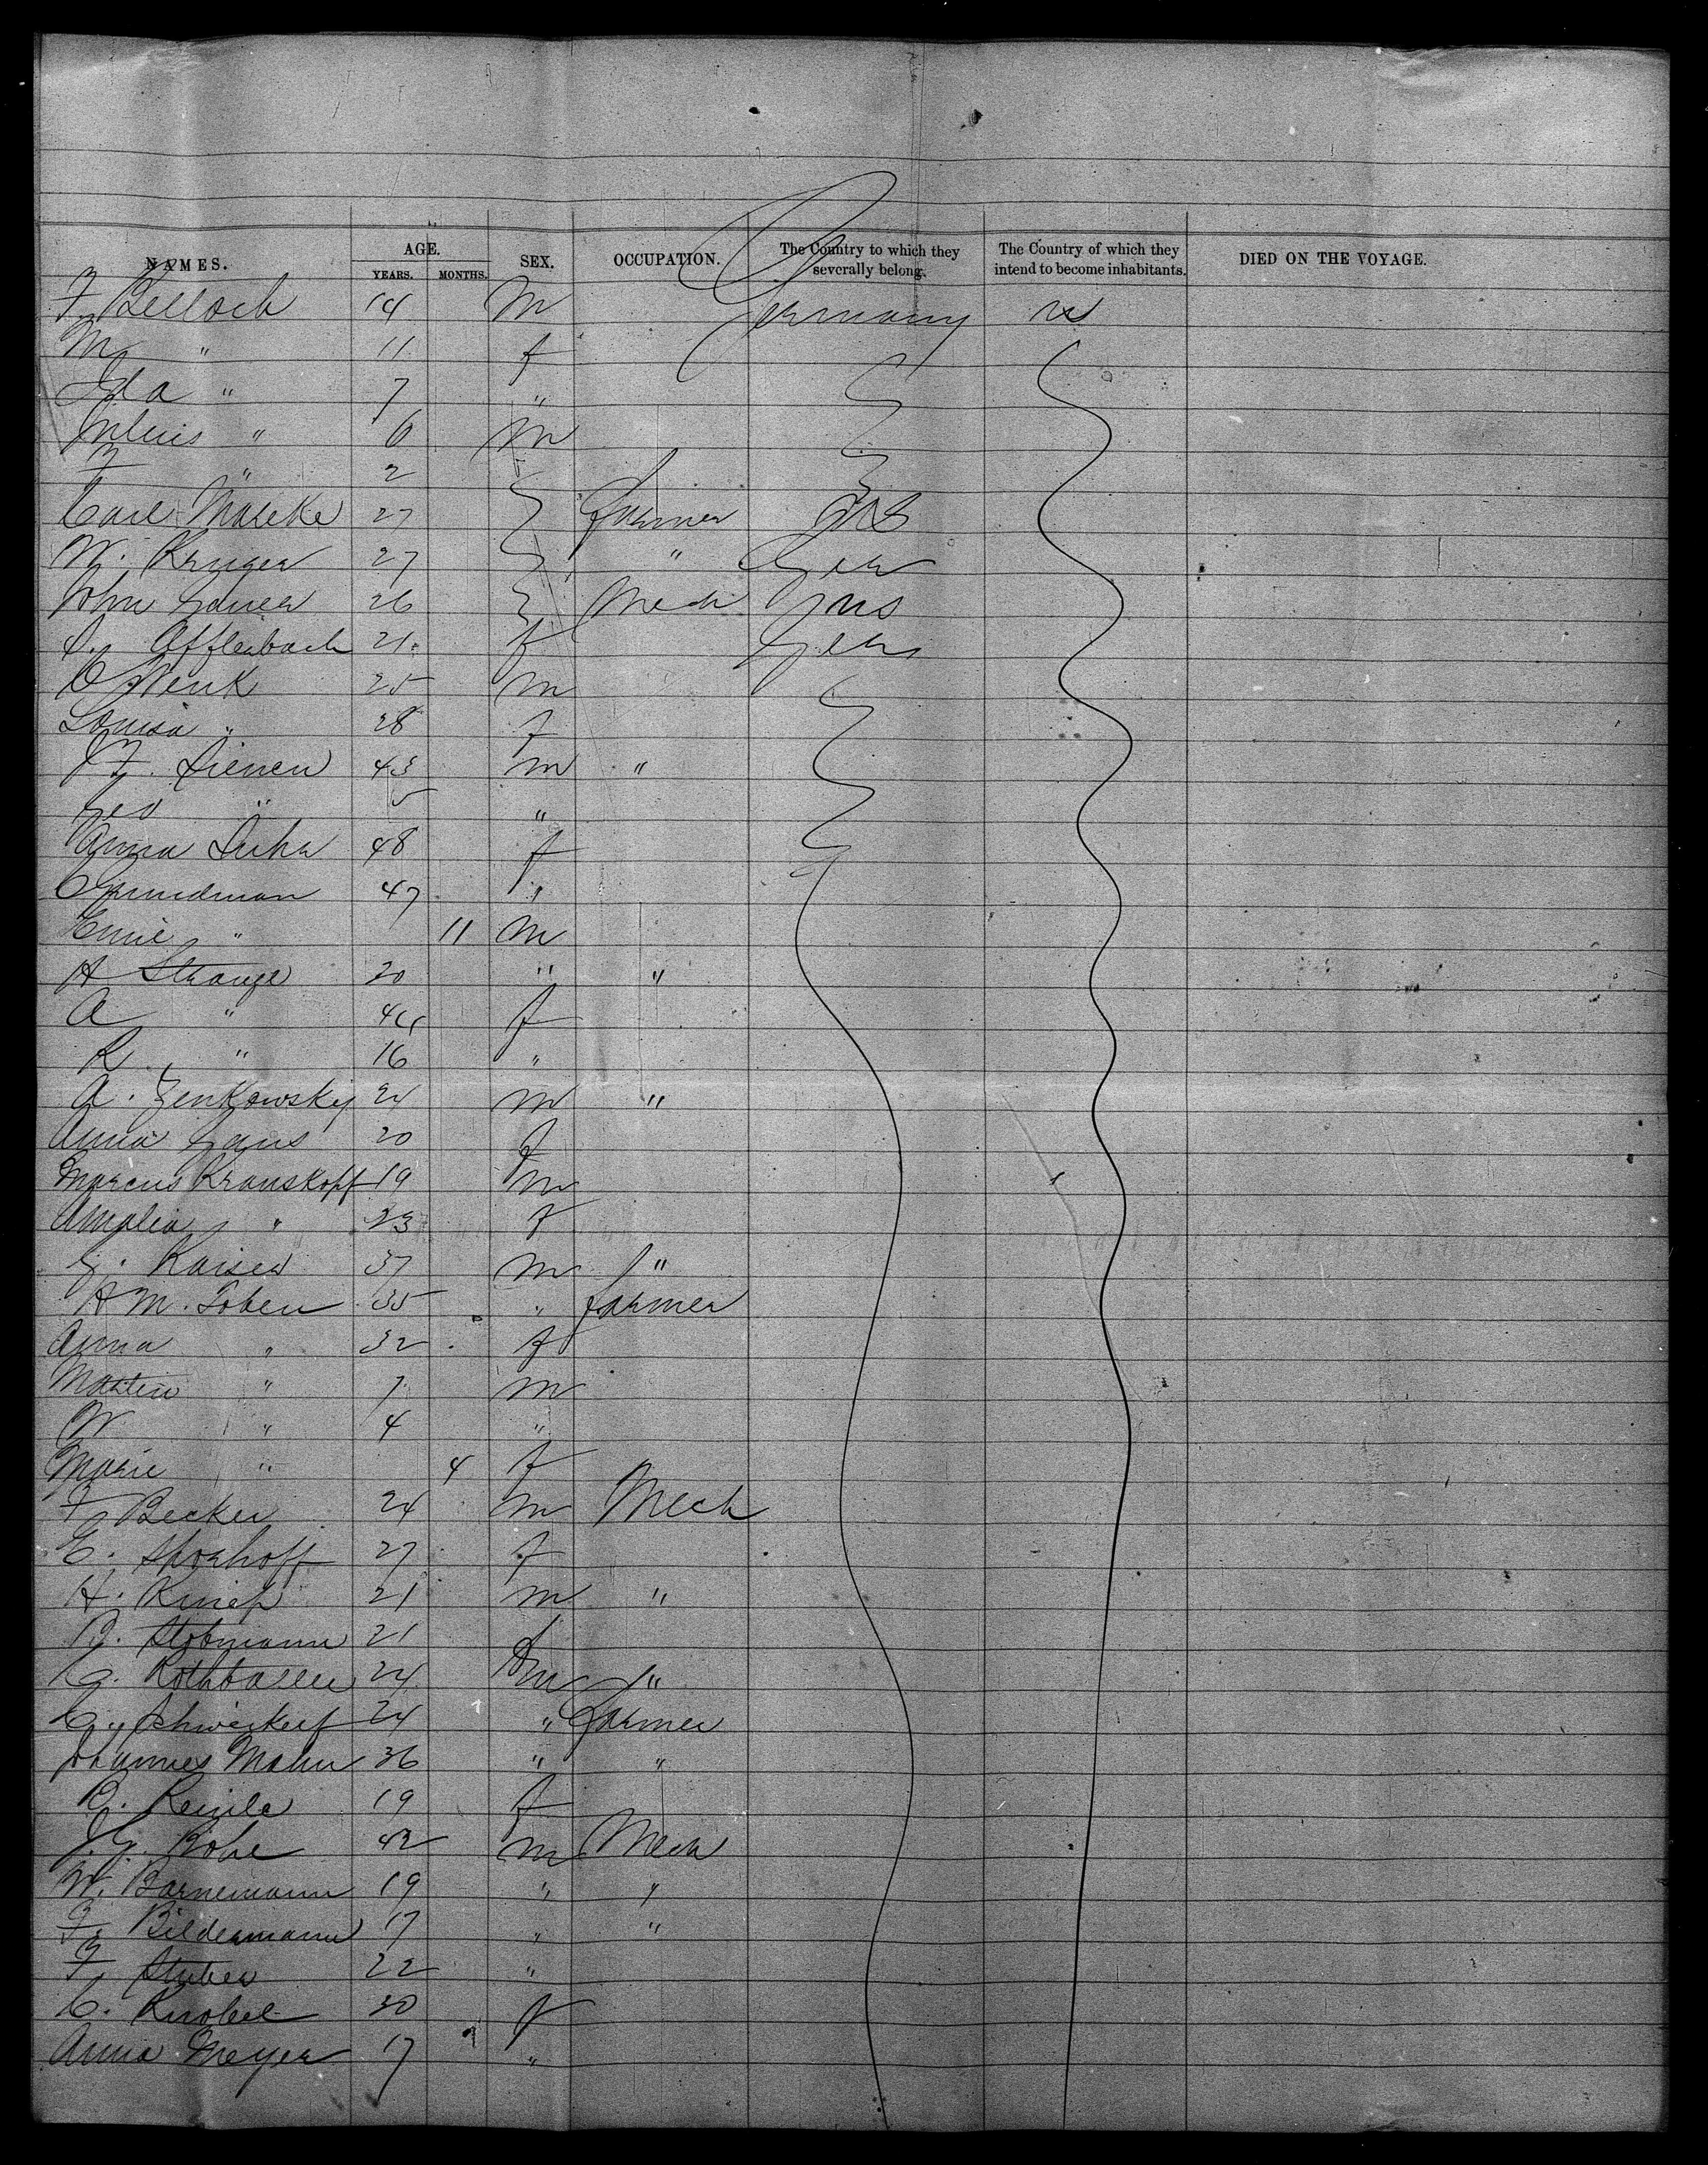 NAMES. AGE. YEARS. MONTHS. SEX. OCCUPATION. The Country to which they severally belong. The Country of which they intend to become inhabitants. DIED ON THE VOYAGE.
F. Belloch 14 M Germany us
M " 11 f
Ida " 7 "
Julius " 6 M
F " 2
Carl Maleke 27 farmer US
W. Kruger 27 " Ger
John Sauer 26 Mech us
Offlerbach 21 f Ger
C Wenk 25 m
Louisa " 28 f
F. Sienen 43 m "
Geo " 5 "
Anna Duhr 48 f
C Grundman 47 "
Emil " 11 M
A Strange 20 " "
A " 44 f
R " 16 "
A. Zenkowsky 24 m "
Anna Gans 20 f
Marcus Krauskopf 19 m
Amalia " 23 f
G. Kaiser 37 m "
H M. Toben 35 " farmer
Anna " 32 f
Martin " 7 m
W " 4 "
Marie " 4 f
F Becker 24 m Mech
E. Sporhoff 27 f
H. Kniep 21 m "
B. Stobmann 21 f
G. Rothballer 24 m "
C. Schweikert 24 " farmer
Johannes Mahn 36 " "
R. Reinle 19 f
J. G. Bohe 42 m Mech
W. Barnemann 19 " "
F. Bildermann 17 " "
F. Stuber 22 "
C. Knobel 30 f
Anna Meyer 17 "